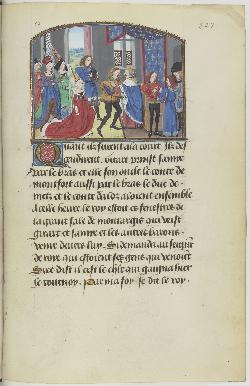 327
Quant ilz furent a la court ilz des
cendirent. Girart prinst Jamie
par le bras et elle son oncle le conte de
monfort aussi par le bras le duc de
mets et le conte dalos aloient ensemble
A celle heure le roy estoit es fenestres de
la grant sale de montargis qui veist
girart et Jamie et les autres barons
venir devers luy. Si demanda au seignr
de roye qui estoient ses gens qui venoiet
Sire dist il cest le chlr qui gaigna hier
le tournoy. Par ma foy se dit le roy.